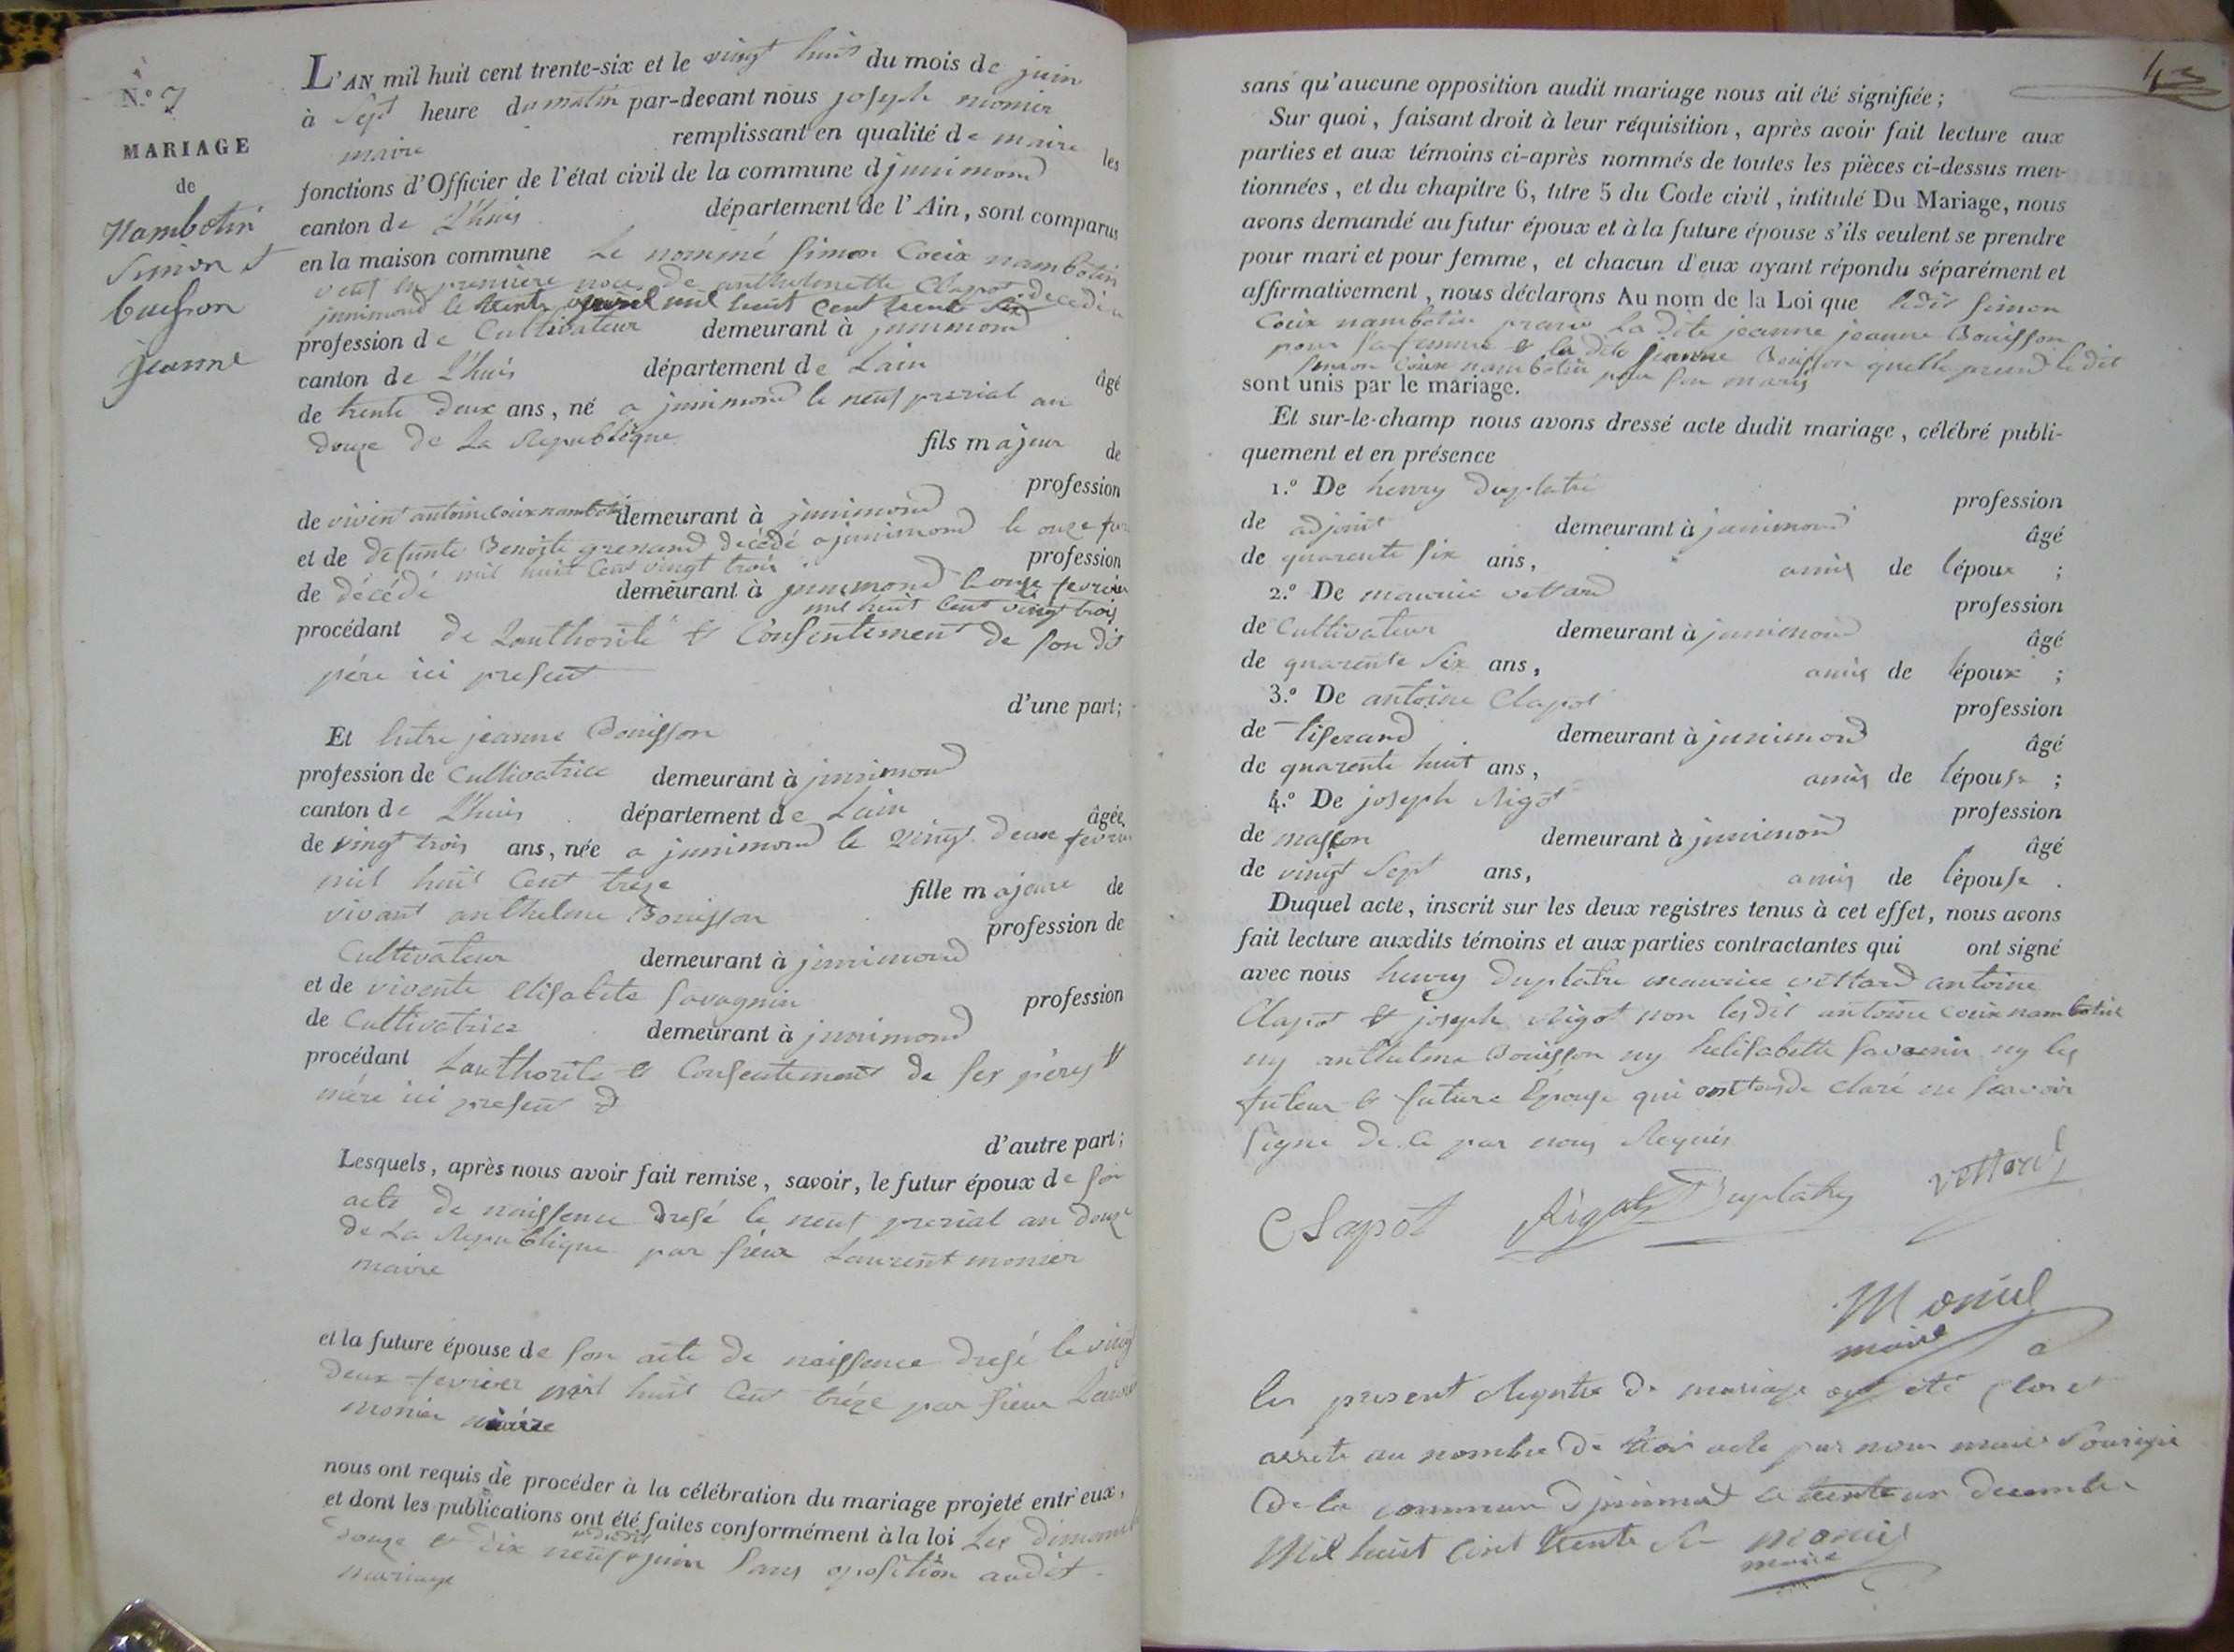 N.º 7
MARIAGE
de
Nambotin
Simon et
buisson
jeanne
L'AN mil huit cent trente-six et le vingt huit du mois de juin
à Sept heure du matin par-devant nous joseph monier
maire remplissant en qualité de maire les
fonctions d'Officier de l'état civil de la commune d junimond
canton de Lhuis département de l'Ain, sont comparus
en la maison commune Le nommé Simon Coeix nambotin
veuf en première noces de anthelmette Clapot decedé a
junimond le trente avril mil huit cent trente six
profession de Cultivateur demeurant à junimond
canton de Lhuis département de Lain âgé
de trente deux ans, né a junimond le neuf prerial an
douze de La Republique fils majeur de
profession
de vivent antoine coeix nambotin demeurant à junimond
et de defunte Benoite grenand decédé a junimond le onze
mil huit cent vingt trois profession
de décédé demeurant à junimond le onze fevrier
mil huit cent vingt trois
procédant de Lauthorité et Consentement de son dit
pére ici present
d'une part;
Et lutre jeanne Bouisson
profession de Cultivatrice demeurant à junimond
canton de Lhuis département de Lain âgée
de vingt trois ans, née a junimond le vingt deux fevrier
mil huit Cent treze fille majeure de
vivant anthelme Bouisson profession de
Cultivateur demeurant à junimond
et de vivente elisabete Savagnin profession
de Cultivatrice demeurant à junimond
procédant Lauthorite et Consentement de ses péres et
mére ici present
d'autre part;
Lesquels, après nous avoir fait remise, savoir, le futur époux de son
acte de naissence dresé le neuf prerial an douze
de La Republique par sieur Laurent monier
maire
et la future épouse de son acte de naissence dresé le vingt
deux fevrier mil huit Cent tréze par sieur
monier maire
nous ont requis de procéder à la célébration du mariage projeté entr'eux,
et dont les publications ont été faites conformément à la loi Les dimanche
douze et dix neuf juin sans oposition audit
mariage
43
sans qu'aucune opposition audit mariage nous ait été signifiée;
Sur quoi, faisant droit à leur réquisition, après avoir fait lecture aux
parties et aux témoins ci-après nommés de toutes les pièces ci-dessus men-
tionnées, et du chapitre 6, titre 5 du Code civil, intitulé Du Mariage, nous
avons demandé au futur époux et à la future épouse s'ils veulent se prendre
pour mari et pour femme, et chacun d'eux ayant répondu séparément et
affirmativement, nous déclarons Au nom de la Loi que ledit Simon
Coeix nambotin La dite jeanne jeanne Bouisson
pour sa femme et la dite jeanne Bouisson quelle prend le dit
Simon Coeix nambotin pour son maris
sont unis par le mariage.
Et sur-le-champ nous avons dressé acte dudit mariage, célébré publi-
quement et en présence
1.º De henry duplatre profession
de adjoint demeurant à junimond âgé
de quarente six ans, amis de lépoux ;
2.º De maurice vettard profession
de Cultivateur demeurant à junimond âgé
de quarente six ans, amis de lépoux ;
3.º De antoine Clapot profession
de tiserand demeurant à junimond âgé
de quarente huit ans, amis de lépouse ;
4.º De joseph Rigot profession
de masson demeurant à junimond âgé
de vingt sept ans, amis de lépouse .
Duquel acte, inscrit sur les deux registres tenus à cet effet, nous avons
fait lecture auxdits témoins et aux parties contractantes qui ont signé
avec nous henry duplatre maurice vettard antoine
Clapot et joseph Rigot non lesdit antoine coeix nambotin
ny anthelme Bouisson ny helisabette ny les
futeur et future Epouse qui ont tous de claré ne Scavoir
Signe de ce par nous Requis
Clapot Rigot Duplatre vettard
Monier
maire
les present Registre de mariage été clos et
arrete au nombre de acte par nous maire
De la commune djunimond le trente un decembre
Mil huit cent trente Six Monier
maire